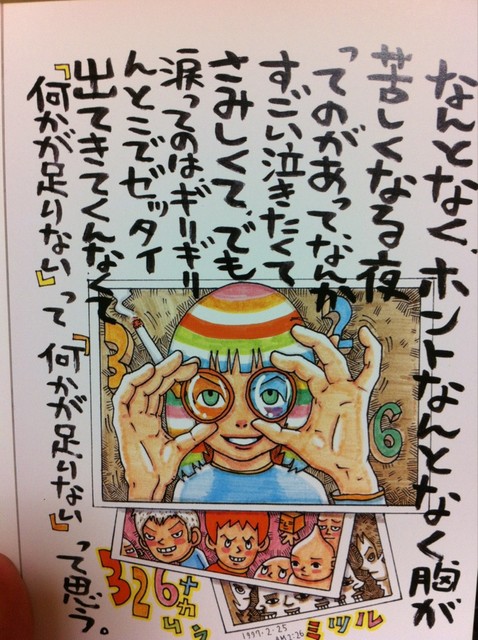 なんとなく、ホントなんとなく胸が
苦しくなる夜
ってのがあって、なんか
すごい泣きたくて
さみしくて、でも
涙ってのは、ギリギリ
んとこでゼッタイ
出てきてくんなくて
「何かが足りない」って「何かが足りない」って思う。
3
2
6
326
ナカムラ
ミツル
1997.2.25
AM2:26